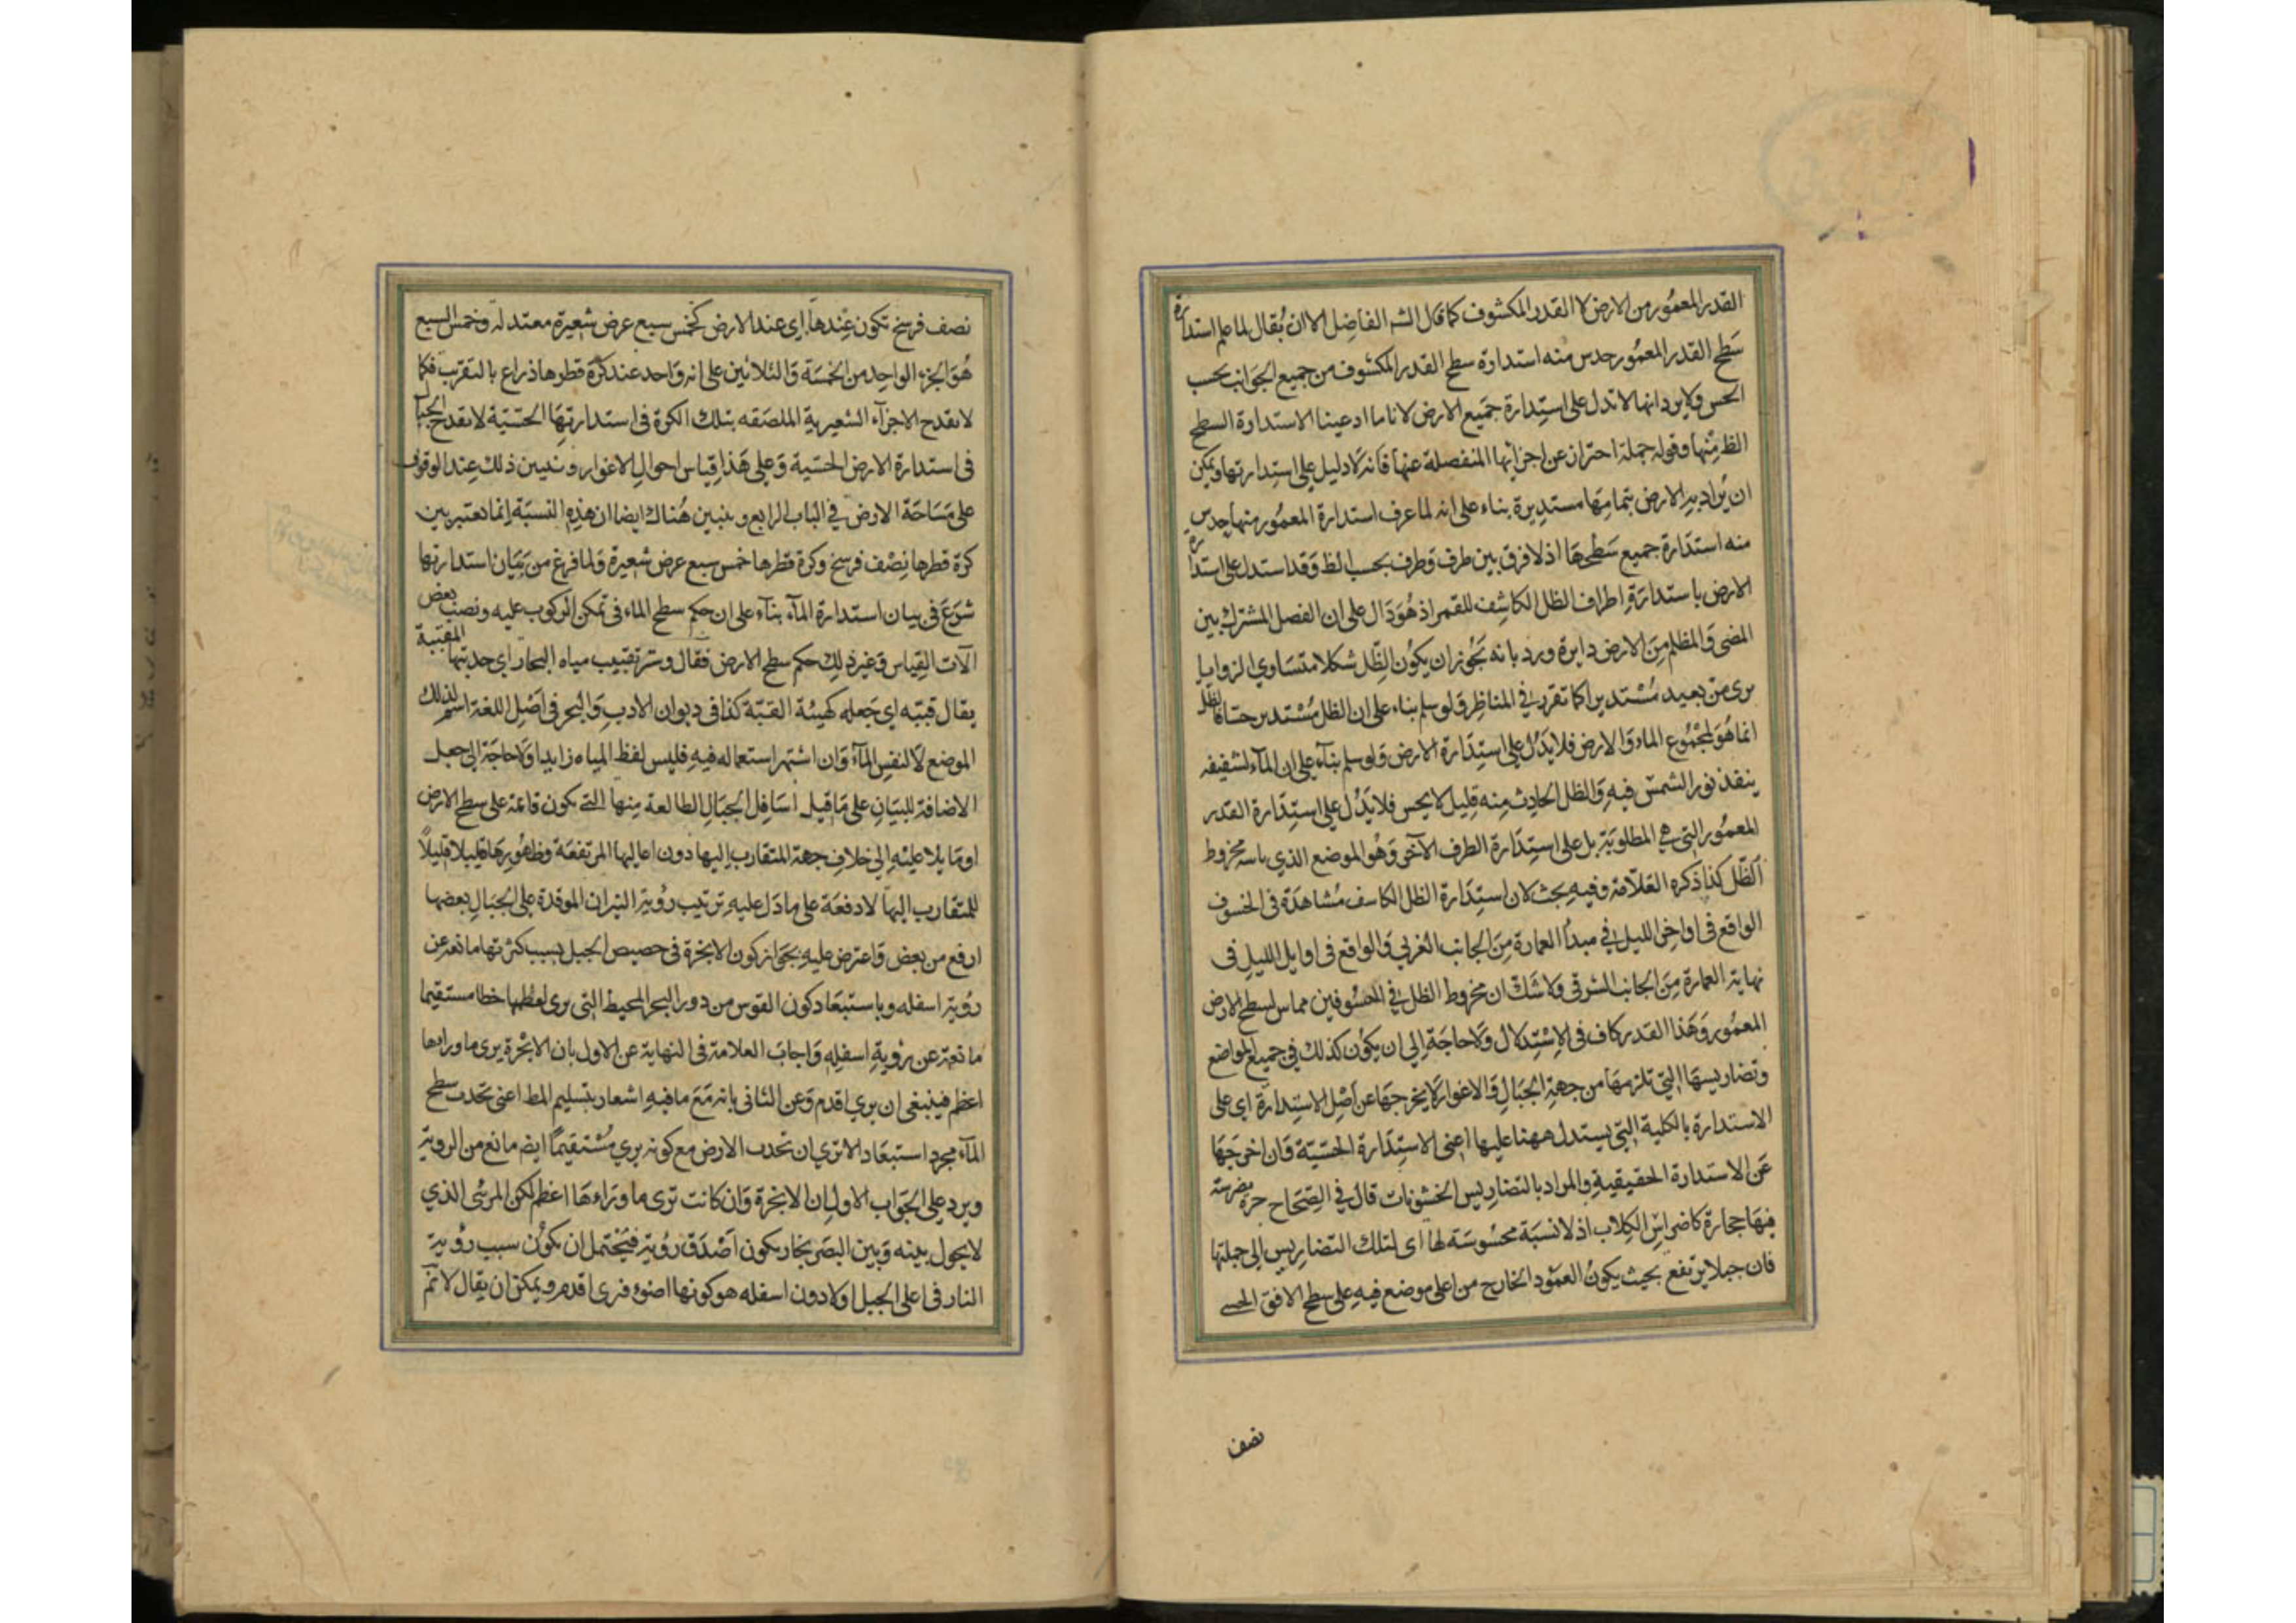 القدر المعمور من الارض لا القدر المكشوف كما قال الشه الفاضل الا ان يقال لما علم استدارة
سطح القدر المعمور حدس منه استدارة سطح القدر المكشوف من جميع الجوانب بحسب
الحس ولا يرد انها لا تدل على استدارة جميع الارض لانا ما ادعينا الا استدارة السطح
الظ منها وقوله جملة احتراز عن اجزائها المنفصلة عنها فانه لا دليل على استدارتها ويمكن
ان يراد به الارض بتمامها مستديرة بناء على انه لما عرف استدارة المعمور منها حدس
منه استدارة جميع سطحها اذ لا فرق بين طرف وطرف بحسب الظ وقد استدل على استدارة
الارض باستدارة اطراف الظل الكاشف للقمر اذ هو دال على ان الفصل المشترك بين
المضى والمظلم من الارض دايرة ورد بانه يجوز ان يكون الظل شكلا متساوي الزوايا
يرى من بعيد مستديرا كما تقرر في المناظر ولو سلم بناء على ان الظل مستدير حسا فالظل
انما هو لمجموع الماء والارض فلا يدل على استدارة الارض ولو سلم بناء على ان الماء لشفيفه
ينفذ نور الشمس فيه والظل الحادث منه قليل لا يحس فلا يدل على استدارة القدر
المعمور التي هي المطلوبة بل على استدارة الطرف الآخر وهو الموضع الذي ماسه مخروط
الظل كذا ذكره العلامة وفيه بحث لان استدارة الظل الكاسف مشاهدة في الخسوف
الواقع في اواخر الليل في مبدأ العمارة من الجانب الغربي والواقع في اوايل الليل في
نهاية العمارة من الجانب الشرقي ولا شك ان مخروط الظل في الخسوفين مماس لسطح الارض
المعمور وهذا القدر كاف في الاستدلال ولا حاجة الى ان يكون كذلك في جميع المواضع
وتضاريسها التي تلزمها من جهة الجبال والاغوار لا يخرجها عن اصل الاستدارة اي على
الاستدارة بالكلية التي يستدل ههنا عليها اعنى الاستدارة الحسية وان اخرجها
عن الاستدارة الحقيقية والمراد بالتضاريس الخشونات قال في الصحاح حرة مضرسة
فيها حجارة كاضراس الكلاب اذ لا نسبة محسوسة لها اى لتلك التضاريس الى جملتها
فان جبلا يرتفع بحيث يكون العمود الخارج من اعلى موضع فيه على سطح الافق الحسى
نصف
نصف فرسخ تكون عندها اي عند الارض كخمس سبع عرض شعيرة معتدلة وخمس السبع
هو الجزء الواحد من الخمسة والثلاثين على انه واحد عند كرة قطرها ذراع بالتقريب فكما
لا تقدح الاجزآء الشعيرية الملصقه بتلك الكرة في استدارتها الحسية لا تقدح الجبال
في استدارة الارض الحسية وعلى هذا قياس احوال الاغوار ونبين ذلك عند الوقوف
على مساحة الارض في الباب الرابع ونبين هناك ايضا ان هذه النسبة انما تعتبر بين
كرة قطرها نصف فرسخ وكرة قطرها خمس سبع عرض شعيرة ولما فرغ من بيان استدارتها
شرع في بيان استدارة الماء بناء على ان حكم سطح الماء في تمكن الركوب عليه ونصب بعض
الآت القياس وغير ذلك حكم سطح الارض فقال وستر تقبيب مياه البحار اي حدبتها المقببة
يقال قببه اي جعله كهيئة القبة كذا في ديوان الادب والبحر في اصل اللغة اسم لذلك
الموضع لا لنفس الماء وان اشتهر استعماله فيه فليس لفظ المياه زايدا ولا حاجة الى جعل
الاضافة للبيان على ما قيل اسافل الجبال الطالعة منها التي يكون قاعدة على سطح الارض
او مايلا عليه الى خلاف جهة المتقارب اليها دون اعاليها المرتفعة وظهورها قليلا قليلاً
للمتقارب اليها لا دفعة على ما دل عليه ترتيب رؤية النيران الموقدة على الجبال بعضها
ارفع من بعض واعترض عليه بجواز كون الابخرة في حضيض الجبل بسبب كثرتها مانعة عن
رؤية اسفله وباستبعاد كون القوس من دور البحر المحيط التي يرى لعظمها خطا مستقيما
مانعة عن رؤية اسفله واجاب العلامة في النهاية عن الاول بان الابخرة يرى ما وراءها
اعظم فينبغي ان يرى اقدم وعن الثاني بانه مع ما فيه اشعار بتسليم المط اعنى تحدب سطح
الماء مجرد استبعاد الا ترى ان تحدب الارض مع كونه يرى مستقيماً ايضا مانع من الروية
ويرد على الجواب الاول ان الابخرة وان كانت ترى ما وراءها اعظم لكن المرئى الذي
لا يحول بينه وبين البصر بخار يكون اصدق رؤية فيحتمل ان يكون سبب رؤية
النار في اعلى الجبل اولا دون اسفله هو كونها اضوء فرى اقدم ويمكن ان يقال لا نم